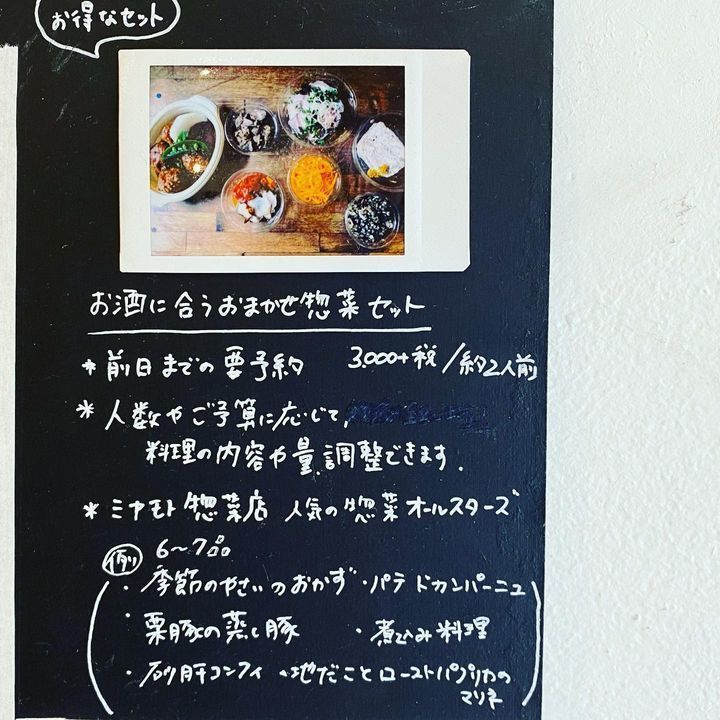 お得なセット
お酒に合うおまかせ惣菜セット
* 前日までの要予約 3,000+税/約2人前
* 人数やご予算に応じて、
料理の内容や量、調整できます.
* ミヤモト惣菜店 人気の惣菜オールスターズ
例 6〜7品
・季節のやさいのおかず ・パテドカンパーニュ
・栗豚の蒸し豚 ・煮込み料理
・砂肝コンフィ ・地だことローストパプリカの
マリネ